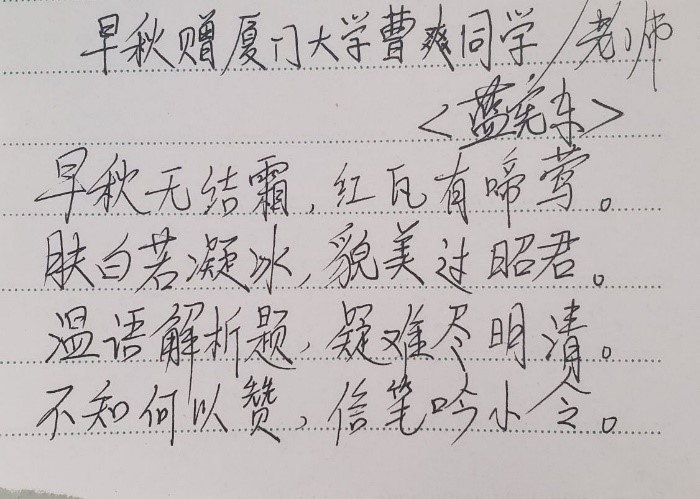 早秋赠厦门大学曹爽同学/老师
<蓝宪东>
早秋无结霜,红瓦有啼莺。
肤白若凝冰,貌美过昭君。
温语解析题,疑难尽明清。
不知何以赞,信笔吟小令。